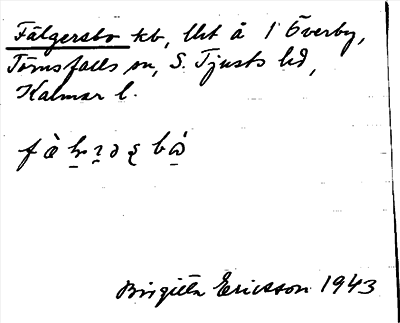 Fälgersbo kb, Urt å 1 Överby,
Törnsfalls sn, S. Tjusts hd,
Kalmar l.
Birgitta Ericsson 1943